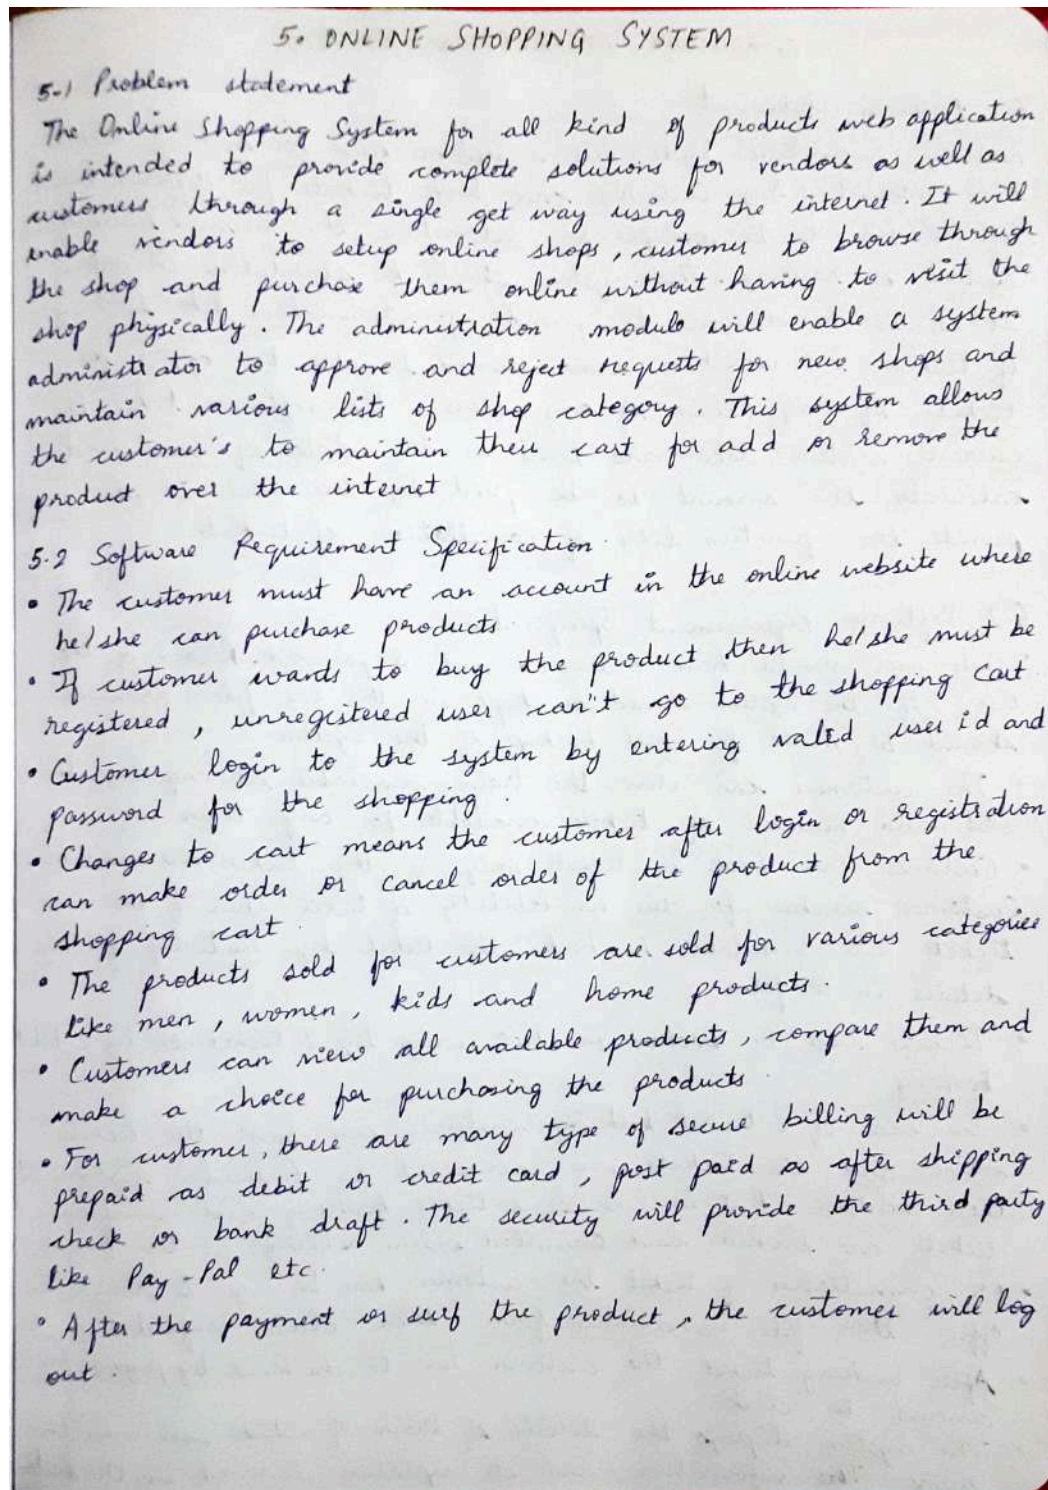 5. ONLINE SHOPPING SYSTEM
5.1 Problem statement
The Online Shopping System for all kind of products web application
is intended to provide complete solutions for vendors as well as
customers through a single get way using the internet. It will
enable vendors to setup online shops, customer to browse through
the shop and purchase them online without having to visit the
shop physically. The administration module will enable a system
administrator to approve and reject requests for new shops and
maintain various lists of shop category. This system allows
the customer's to maintain their cart for add or remove the
product over the internet
5.2 Software Requirement Specification
• The customer must have an account in the online website where
he/she can purchase products.
• If customer wants to buy the product then he/she must be
registered, unregistered user can't go to the shopping cart
• Customer login to the system by entering valid user id and
password for the shopping.
• Changes to cart means the customer after login or registration
can make order or cancel order of the product from the
shopping cart.
• The products sold for customers are sold for various categories
like men, women, kids and home products.
• Customers can view all available products, compare them and
make a choice for purchasing the products.
• For customer, there are many type of secure billing will be
prepaid as debit or credit card, post paid as after shipping
check or bank draft. The security will provide the third party
like Pay-Pal etc.
• After the payment or surf the product, the customer will log
out.